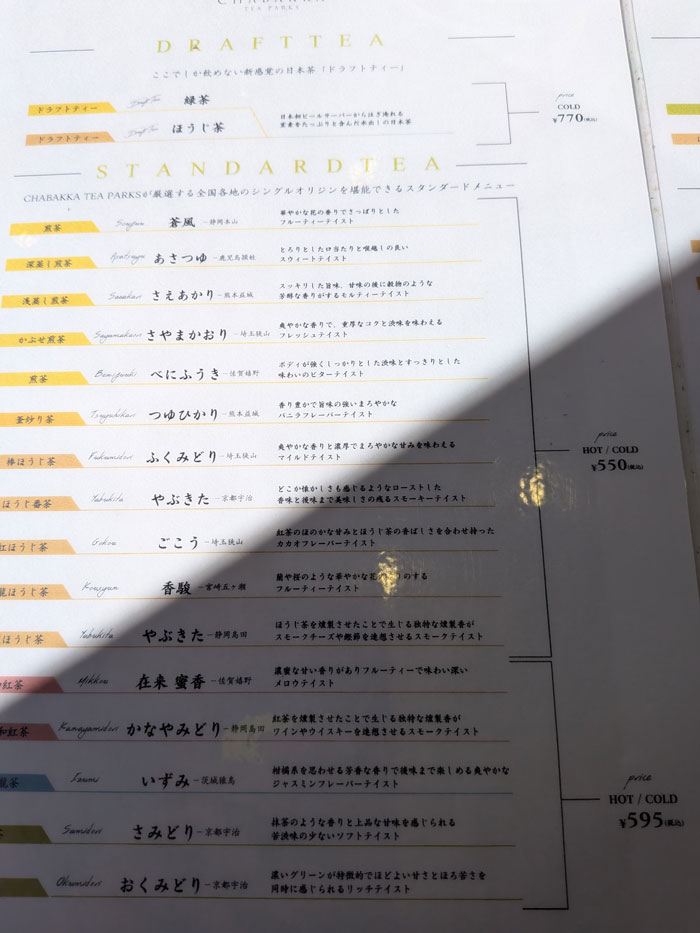 CHABAKKA
TEA PARKS
DRAFTTEA
ここでしか飲めない新感覚の日本茶「ドラフトティー」
ドラフトティー Draft Tea 緑茶
ドラフトティー Draft Tea ほうじ茶
日本初ビールサーバーから注ぎ淹れる
窒素をたっぷりと含んだ水出しの日本茶
price
COLD
¥770(税込)
STANDARDTEA
CHABAKKA TEA PARKSが厳選する全国各地のシングルオリジンを堪能できるスタンダードメニュー
煎茶 蒼風 –静岡本山
華やかな花の香りでさっぱりとした
フルーティーテイスト
深蒸し煎茶 あさつゆ –鹿児島頴娃
とろりとした口当たりと喉越しの良い
スウィートテイスト
浅蒸し煎茶 Saeakari さえあかり –熊本益城
スッキリした旨味、甘味の後に穀物のような
芳醇な香りがするモルティーテイスト
かぶせ煎茶 Sayamakaori さやまかおり –埼玉狭山
爽やかな香りで、重厚なコクと渋味を味わえる
フレッシュテイスト
煎茶 Benifuuki べにふうき –佐賀嬉野
ボディが強くしっかりとした渋味とすっきりとした
味わいのビターテイスト
釜炒り茶 Tsuyuhikari つゆひかり –熊本益城
香り豊かで旨味の強いまろやかな
バニラフレーバーテイスト
棒ほうじ茶 Fukumidori ふくみどり –埼玉狭山
爽やかな香りと濃厚でまろやかな甘みを味わえる
マイルドテイスト
price
HOT / COLD
¥550(税込)
ほうじ番茶 Yabukita やぶきた –京都宇治
どこか懐かしさも感じるようなローストした
香味と後味まで美味しさの残るスモーキーテイスト
紅ほうじ茶 Gokou ごこう –埼玉狭山
紅茶のほのかな甘みとほうじ茶の香ばしさを合わせ持った
カカオフレーバーテイスト
龍ほうじ茶 Kousyun 香駿 –宮崎五ヶ瀬
蘭や桜のような華やかな花 のする
フルーティーテイスト
ほうじ茶 Yabukita やぶきた –静岡島田
ほうじ茶を燻製させたことで生じる独特な燻製香が
スモークチーズや鰹節を連想させるスモークテイスト
和紅茶 Mikkou 在来 蜜香 –佐賀嬉野
濃蜜な甘い香りがありフルーティーで味わい深い
メロウテイスト
和紅茶 Kanayamidori かなやみどり –静岡島田
紅茶を燻製させたことで生じる独特な燻製香が
ワインやウイスキーを連想させるスモークテイスト
龍茶 Izumi いずみ –茨城猿島
柑橘系を思わせる芳香な香りで後味まで楽しめる爽やかな
ジャスミンフレーバーテイスト
price
HOT / COLD
¥595(税込)
茶 Samidori さみどり –京都宇治
抹茶のような香りと上品な甘味を感じられる
苦渋味の少ないソフトテイスト
Okumidori おくみどり –京都宇治
濃いグリーンが特徴的でほどよい甘さとほろ苦さを
同時に感じられるリッチテイスト